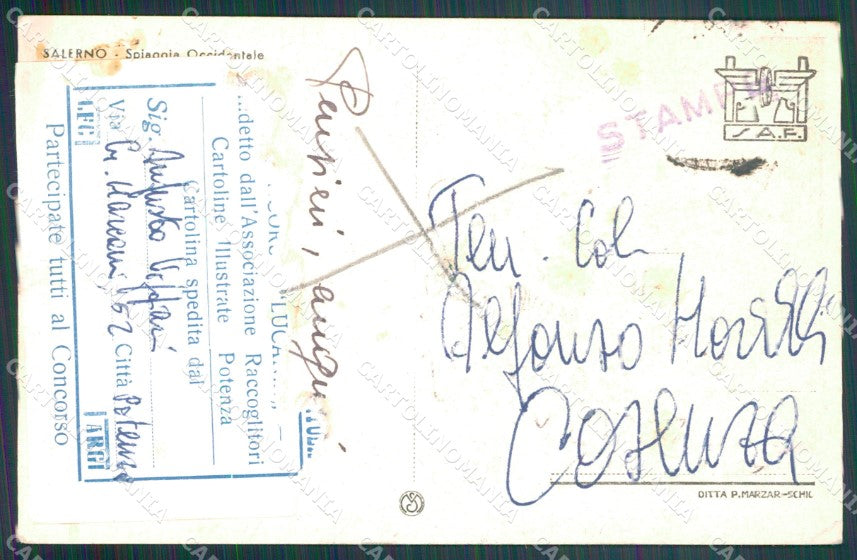 SALERNO - Spiaggia Occidentale
...detto dall'Associazione Raccoglitori
Cartoline Illustrate Potenza
Cartolina spedita dal
Sig.
Via G. Marconi 52 Città Potenza
Partecipate tutti al Concorso
Pensieri, auguri
STAMPE
S.A.F.
Ten. Col.
Alfonso Morelli
Cosenza
DITTA P. MARZAR-SCHIC
CARTOLINOMANIA